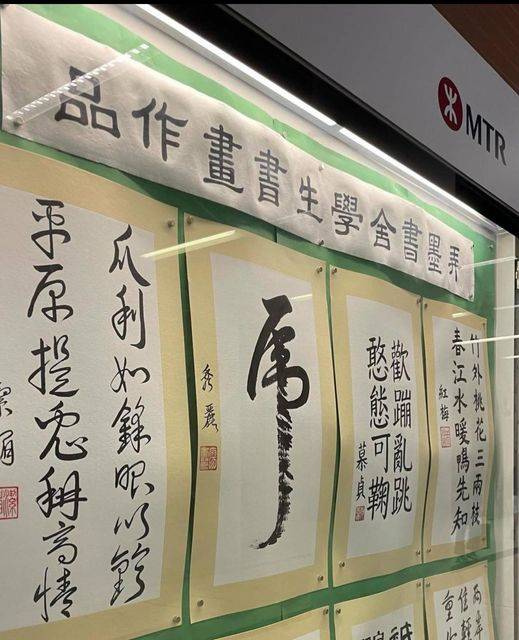 MTR
弄墨書舍學生書畫作品
竹外桃花三兩枝
春江水暖鴨先知
紅梅
歡蹦亂跳
憨態可鞠
慕貞
虎
秀麗
爪利如鋒眼似鈴
平原捉兔稱高情